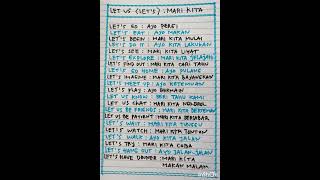 LET US (LET'S) : MARI KITA
LET'S GO : AYO PERGI
LET'S EAT : AYO MAKAN
LET'S BEGIN : MARI KITA MULAI
LET'S DO IT : AYO KITA LAKUKAN
LET'S SEE : MARI KITA LIHAT
LET'S EXPLORE : MARI KITA JELAJAHI
LET'S FIND OUT : MARI KITA CARI TAHU
LET'S GO HOME : AYO PULANG
LET'S IMAGINE : MARI KITA BAYANGKAN
LET'S MEET UP : AYO KETEMUAN
LET'S PLAY : AYO BERMAIN
LET US KNOW : BERI TAHU KAMI
LET US CHAT : MARI KITA NGOBROL
LET US BE FRIENDS : MARI KITA BERTEMAN
LET US BE PATIENT : MARI KITA BERSABAR
LET'S WAIT : MARI KITA TUNGGU
LET'S WATCH : MARI KITA TONTON
LET'S WALK : AYO KITA JALAN
LET'S TRY : MARI KITA COBA
LET'S HANG OUT : AYO JALAN-JALAN
LET'S HAVE DINNER : MARI KITA
MAKAN MALAM